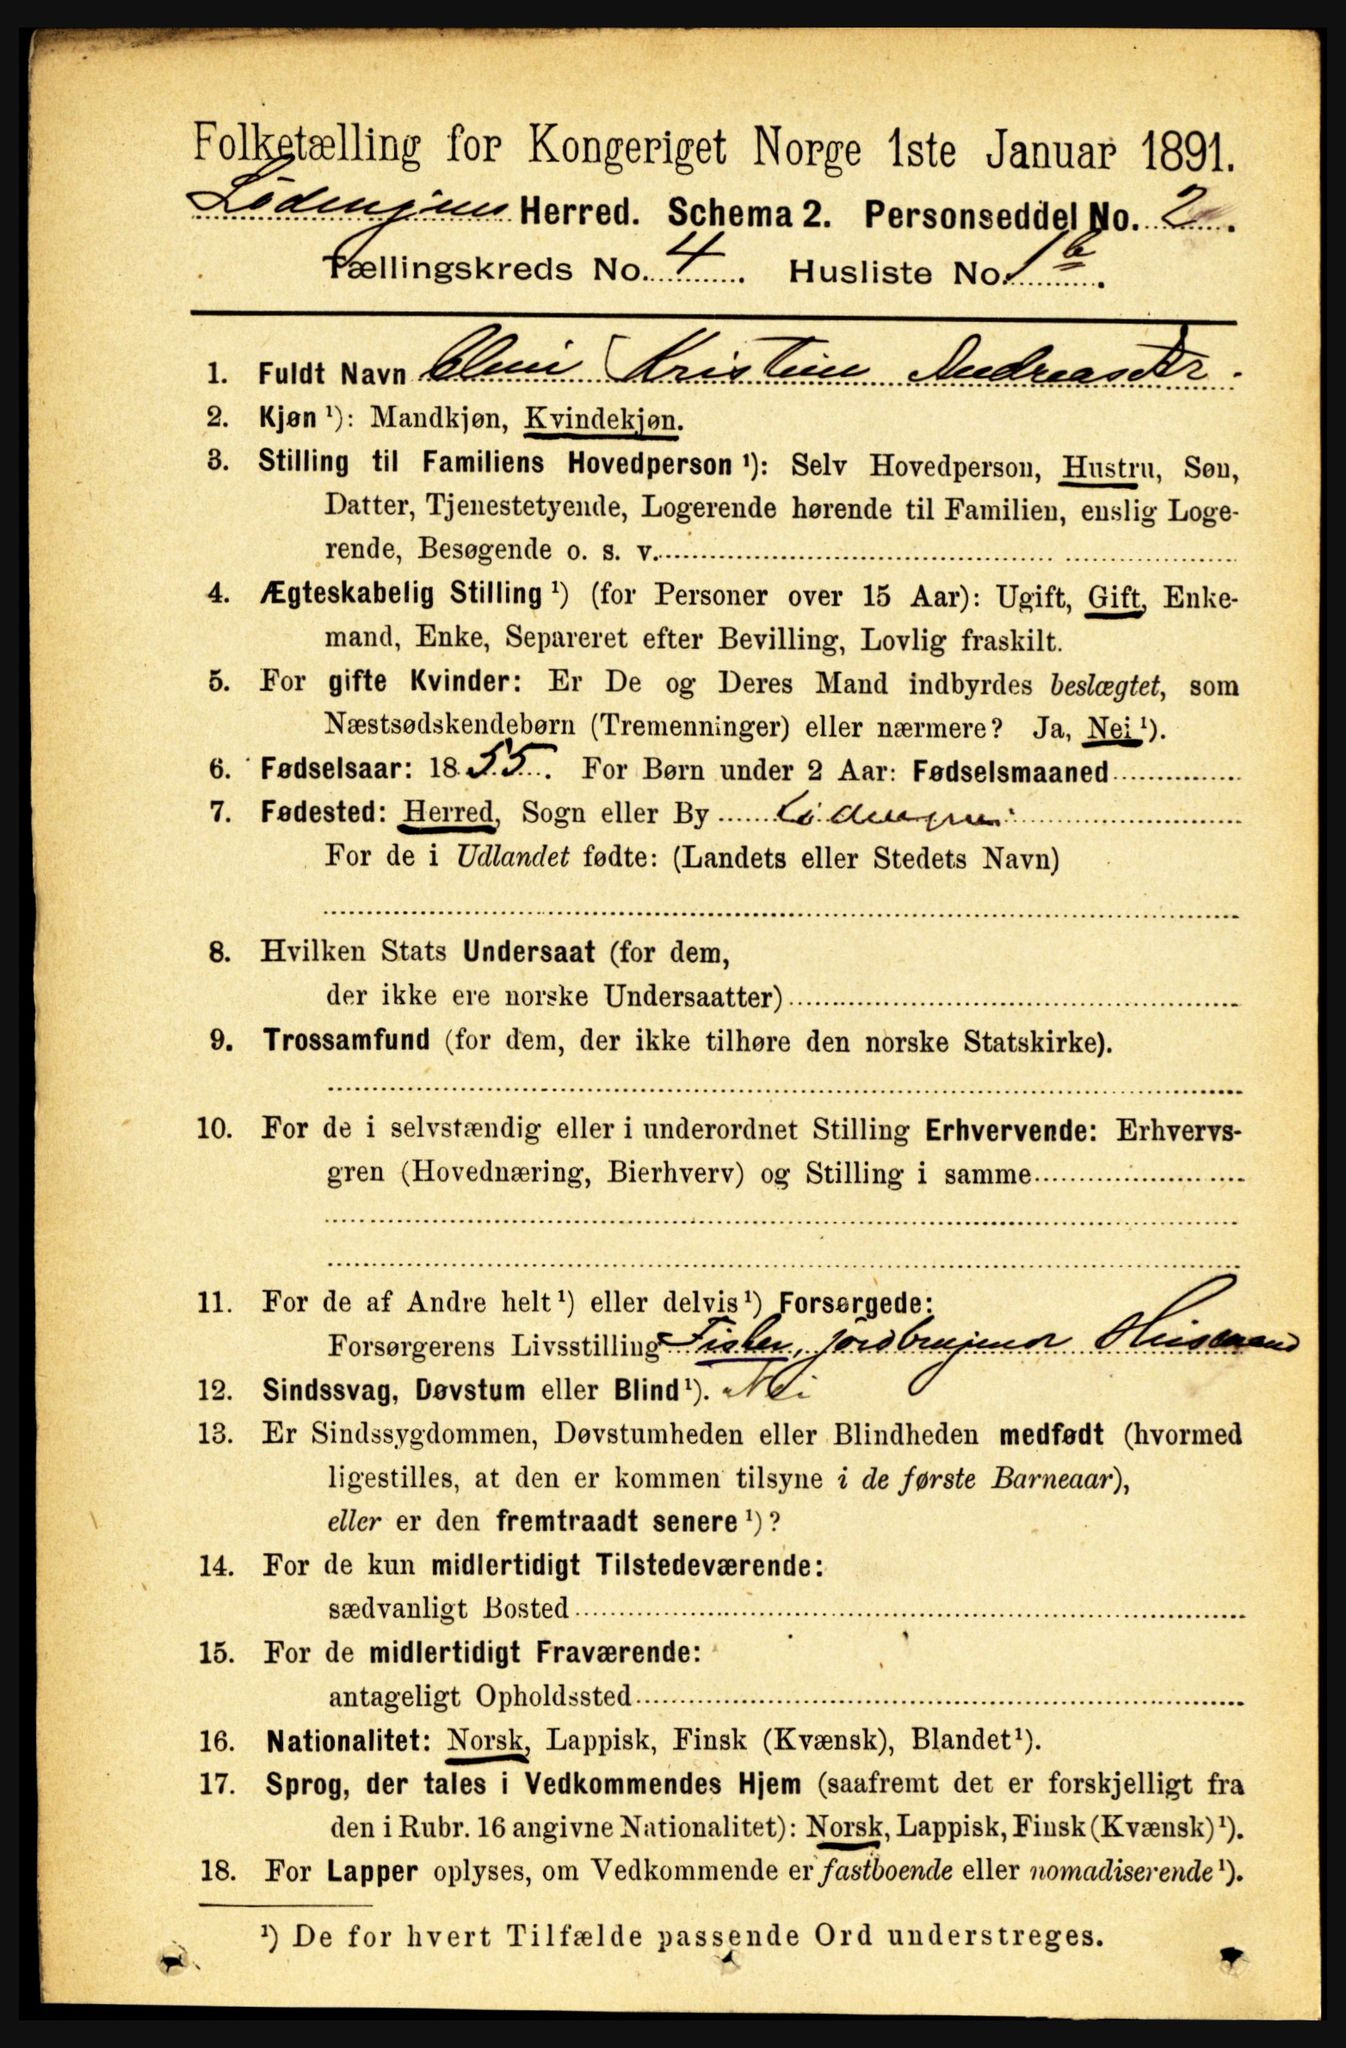 Folketælling for Kongeriget Norge 1ste Januar 1891.
Lødingens Herred. Schema 2. Personseddel No. 2.
Tællingskreds No. 4. Husliste No. 1b.
1. Fuldt Navn Kristine Andreasdtr.
2. Kjøn ¹): Mandkjøn, Kvindekjøn.
3. Stilling til Familiens Hovedperson ¹): Selv Hovedperson, Hustru, Søn,
Datter, Tjenestetyende, Logerende hørende til Familien, enslig Loge-
rende, Besøgende o. s. v.
4. Ægteskabelig Stilling ¹) (for Personer over 15 Aar): Ugift, Gift, Enke-
mand, Enke, Separeret efter Bevilling, Lovlig fraskilt.
5. For gifte Kvinder: Er De og Deres Mand indbyrdes beslægtet, som
Næstsødskendebørn (Tremenninger) eller nærmere? Ja, Nei ¹).
6. Fødselsaar: 1855. For Børn under 2 Aar: Fødselsmaaned
7. Fødested: Herred, Sogn eller By Lødingen.
For de i Udlandet fødte: (Landets eller Stedets Navn)
8. Hvilken Stats Undersaat (for dem,
der ikke ere norske Undersaatter)
9. Trossamfund (for dem, der ikke tilhøre den norske Statskirke).
10. For de i selvstændig eller i underordnet Stilling Erhvervende: Erhvervs-
gren (Hovednæring, Bierhverv) og Stilling i samme
11. For de af Andre helt ¹) eller delvis ¹) Forsørgede:
Forsørgerens Livsstilling Fisker, jordbrugende Husmand
12. Sindssvag, Døvstum eller Blind ¹). Nei
13. Er Sindssygdommen, Døvstumheden eller Blindheden medfødt (hvormed
ligestilles, at den er kommen tilsyne i de første Barneaar),
eller er den fremtraadt senere ¹)?
14. For de kun midlertidigt Tilstedeværende:
sædvanligt Bosted
15. For de midlertidigt Fraværende:
antageligt Opholdssted
16. Nationalitet: Norsk, Lappisk, Finsk (Kvænsk), Blandet ¹).
17. Sprog, der tales i Vedkommendes Hjem (saafremt det er forskjelligt fra
den i Rubr. 16 angivne Nationalitet): Norsk, Lappisk, Finsk (Kvænsk) ¹).
18. For Lapper oplyses, om Vedkommende er fastboende eller nomadiserende ¹).
¹) De for hvert Tilfælde passende Ord understreges.